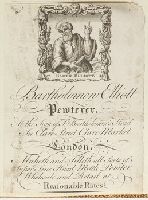 Bartholomew Elliott
Pewterer,
At the Sign of St. Bartholomew's Head
in Clare Street Clare Market
London.
Maketh and Selleth all sorts of
Pewter
Wholesale and Retail at
Reasonable Rates.